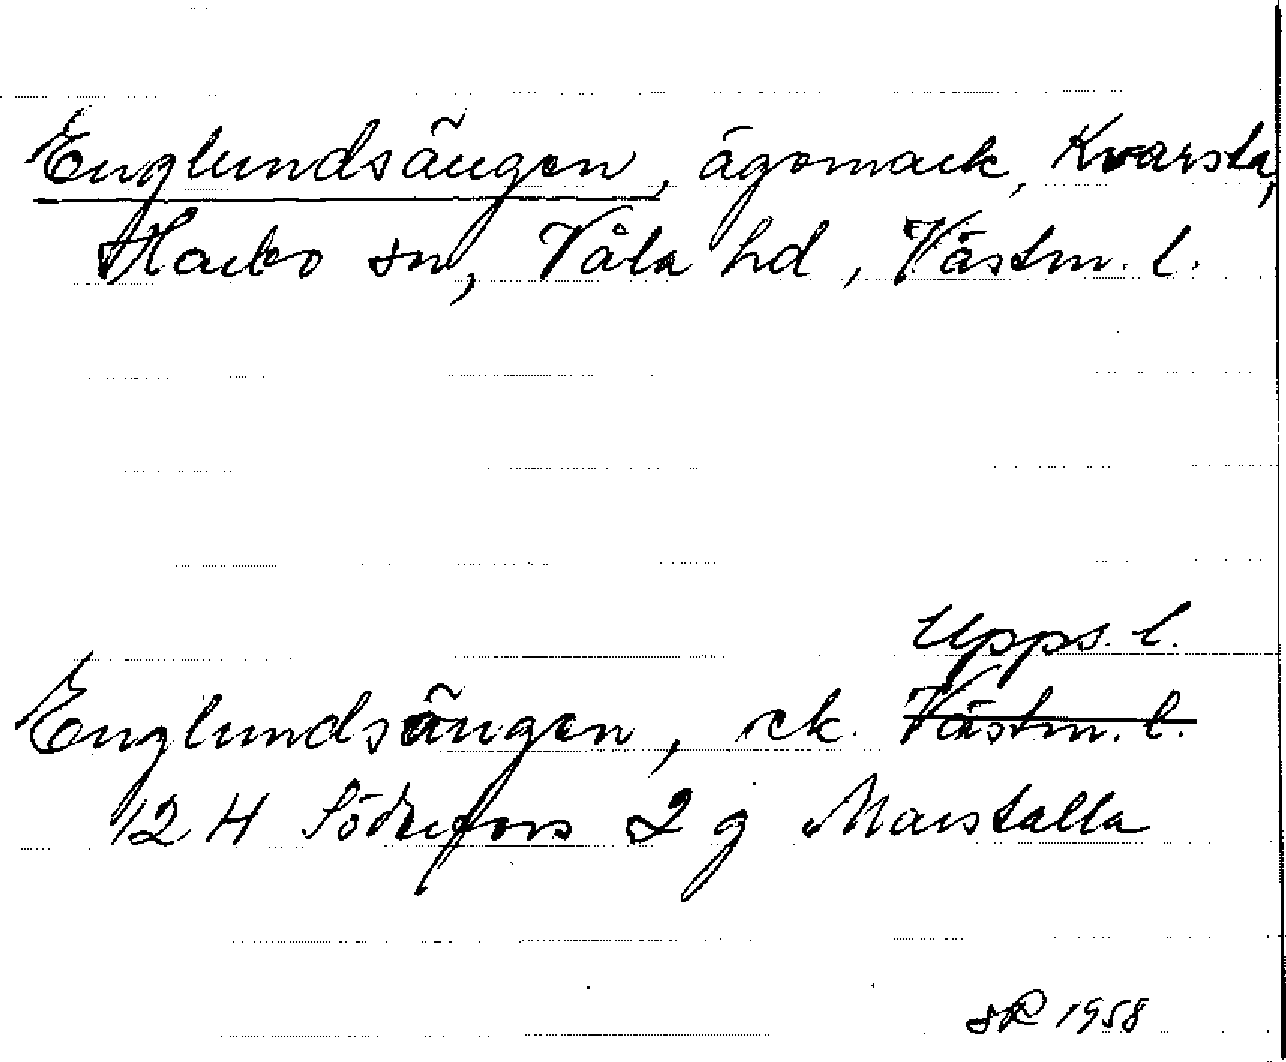 Englundsängen, ägomark, Kvarsta,
Harbo sn, Våla hd, Västm. l.
Upps. l.
Englundsängen, ek. Västm. l.
12 H Söderfors 2 g Marstalla
SR 1958